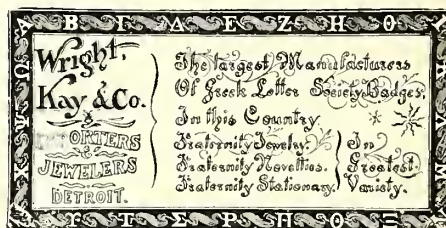 Wright,
Kay & Co.
IMPORTERS
&
JEWELERS
DETROIT.
The Largest Manufacturers
Of Greek Letter Society Badges,
In this Country.
Fraternity Jewelry.
Fraternity Novelties.
Fraternity Stationary.
In
Greatest
Variety.